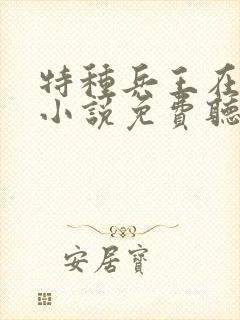 特種兵王在
小説免費聽
安居寶